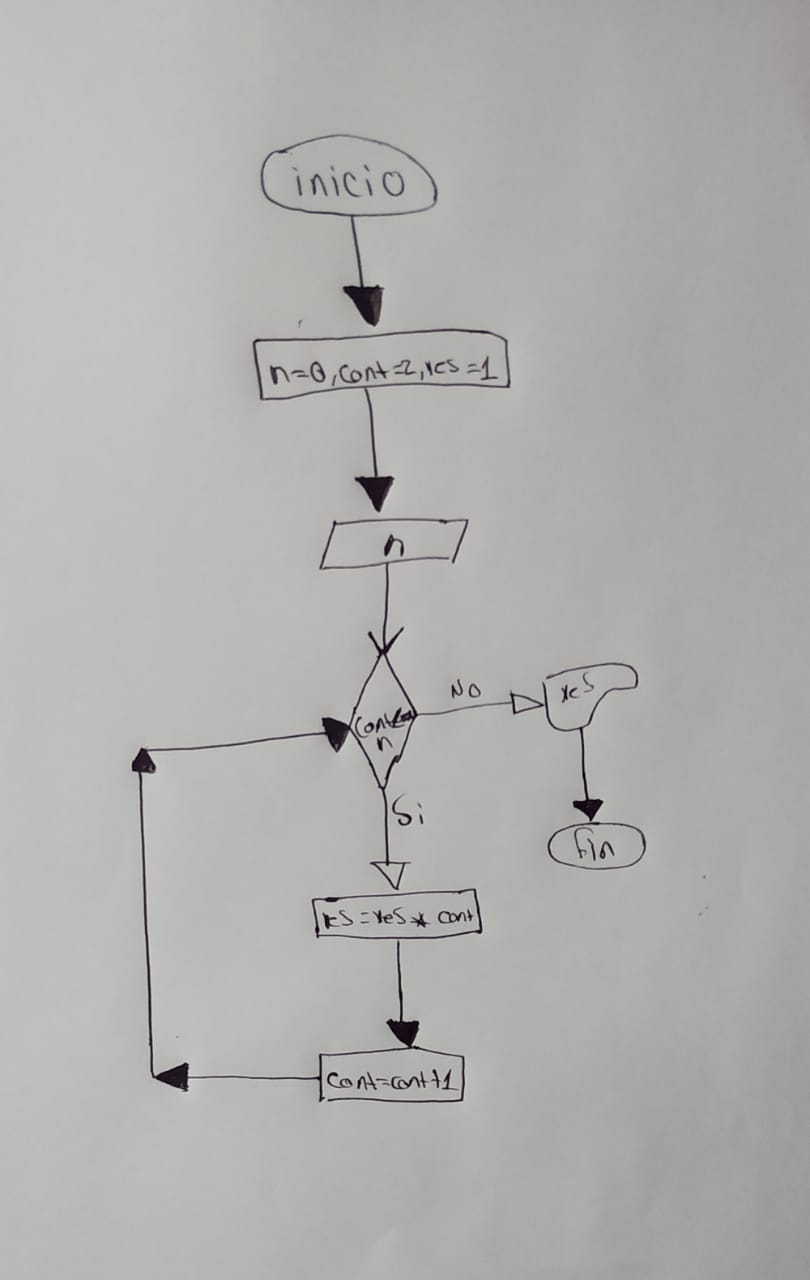 inicio
n=0, cont=2, res=1
n
NO
res
n
Si
fin
res=res* cont
cont=cont+1